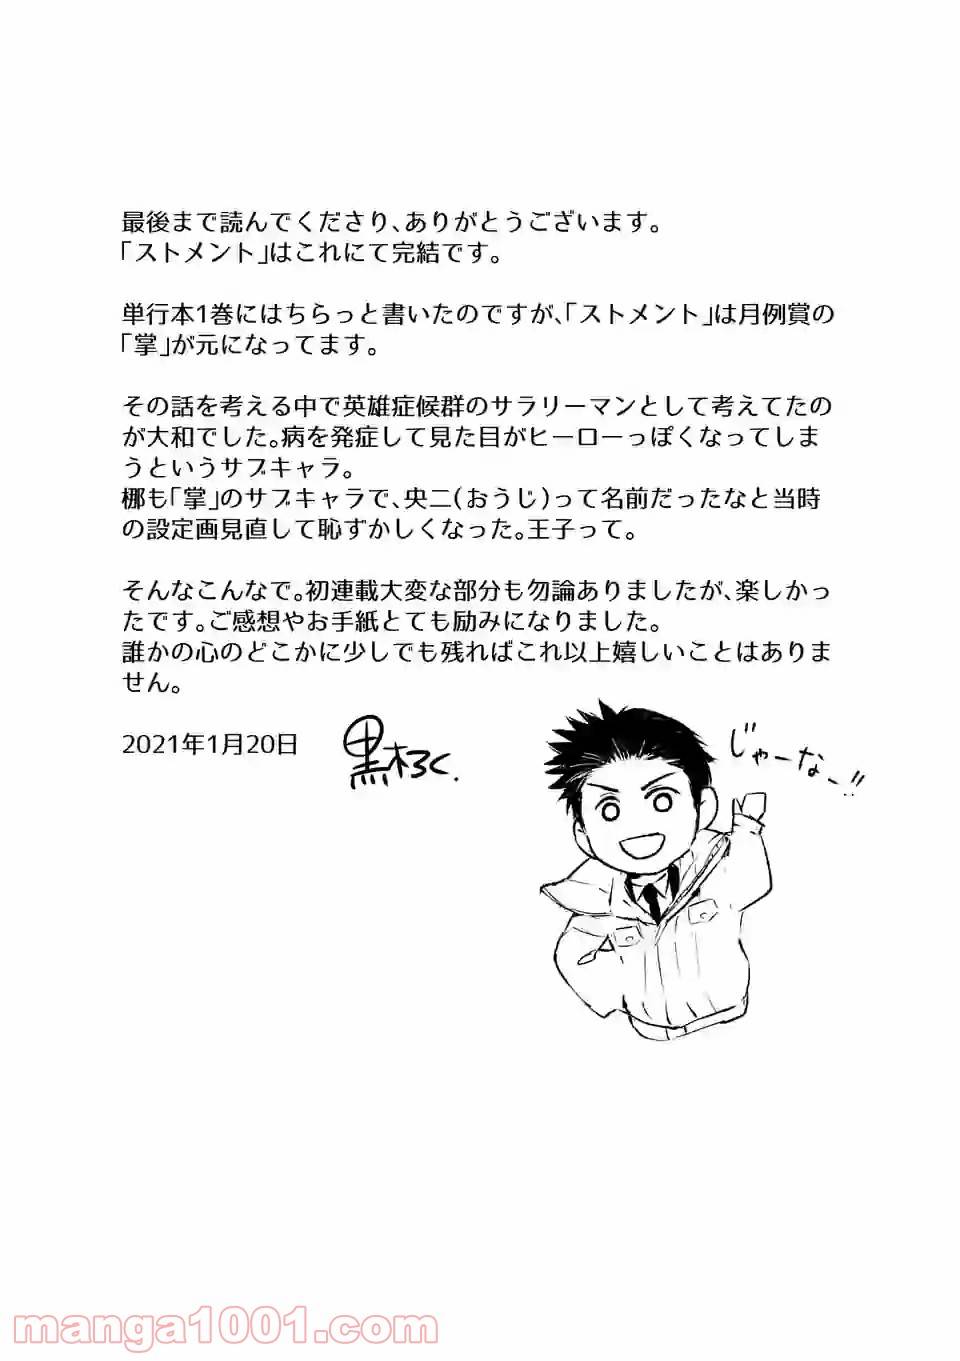 最後まで読んでくださり、ありがとうございます。
「ストメント」はこれにて完結です。
単行本1巻にはちらっと書いたのですが、「ストメント」は月例賞の
「掌」が元になってます。
その話を考える中で英雄症候群のサラリーマンとして考えてたの
が大和でした。病を発症して見た目がヒーローっぽくなってしま
うというサブキャラ。
梛も「掌」のサブキャラで、央二(おうじ)って名前だったなと当時
の設定画見直して恥ずかしくなった。王子って。
そんなこんなで。初連載大変な部分も勿論ありましたが、楽しかっ
たです。ご感想やお手紙とても励みになりました。
誰かの心のどこかに少しでも残ればこれ以上嬉しいことはありま
せん。
2021年1月20日
黒木ろく.
じゃーなー!!
manga1001.com